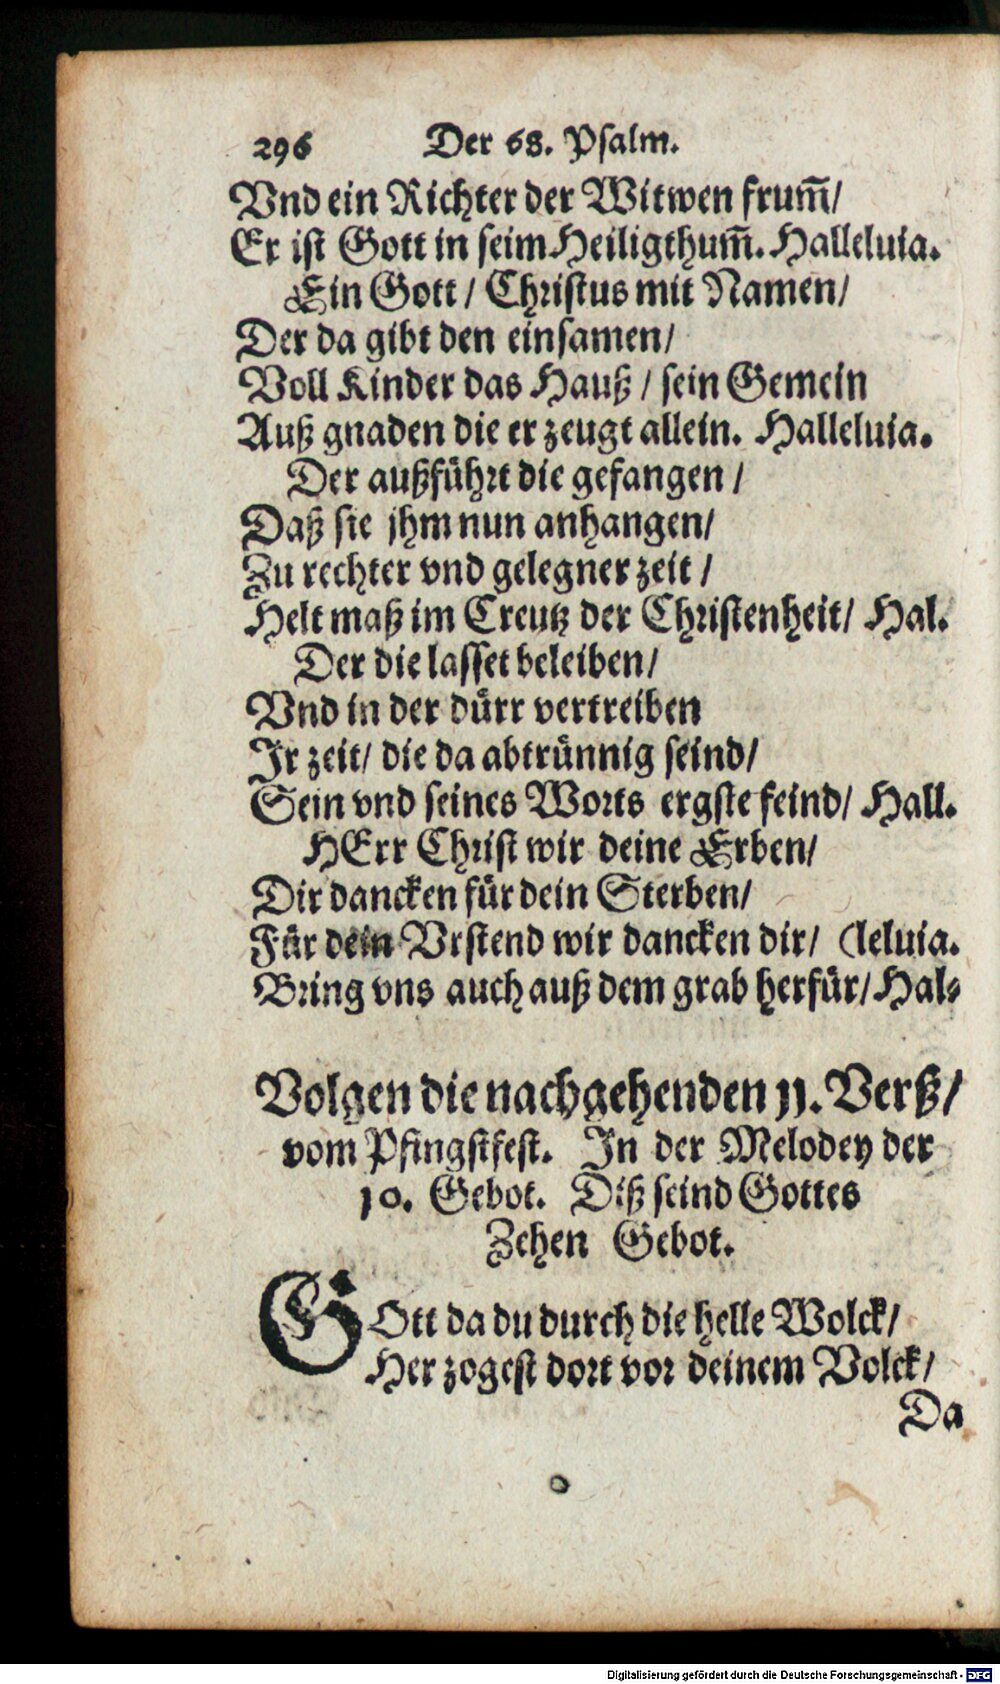 296 Der 68. Psalm.
Vnd ein Richter der Witwen frum̃/
Er ist Gott in seim Heiligthum̃. Halleluia.
Ein Gott / Christus mit Namen/
Der da gibt den einsamen/
Voll Kinder das Hauß / sein Gemein
Auß gnaden die er zeugt allein. Halleluia.
Der außführt die gefangen /
Daß sie jhm nun anhangen/
Zu rechter vnd gelegner zeit /
Helt maß im Creutz der Christenheit/ Hal.
Der die lasset beleiben/
Vnd in der dürr vertreiben
Ir zeit/ die da abtrünnig seind/
Sein vnd seines Worts ergste feind/ Hall.
HErr Christ wir deine Erben/
Dir dancken für dein Sterben/
Für dein Vrstend wir dancken dir/ (leluia.
Bring vns auch auß dem grab herfür/ Hal-
Volgen die nachgehenden 11. Verß/
vom Pfingstfest. In der Melodey der
10. Gebot. Diß seind Gottes
Zehen Gebot.
GOtt da du durch die helle Wolck/
Her zogest dort vor deinem Volck/
Da
Digitalisierung gefördert durch die Deutsche Forschungsgemeinschaft - DFG